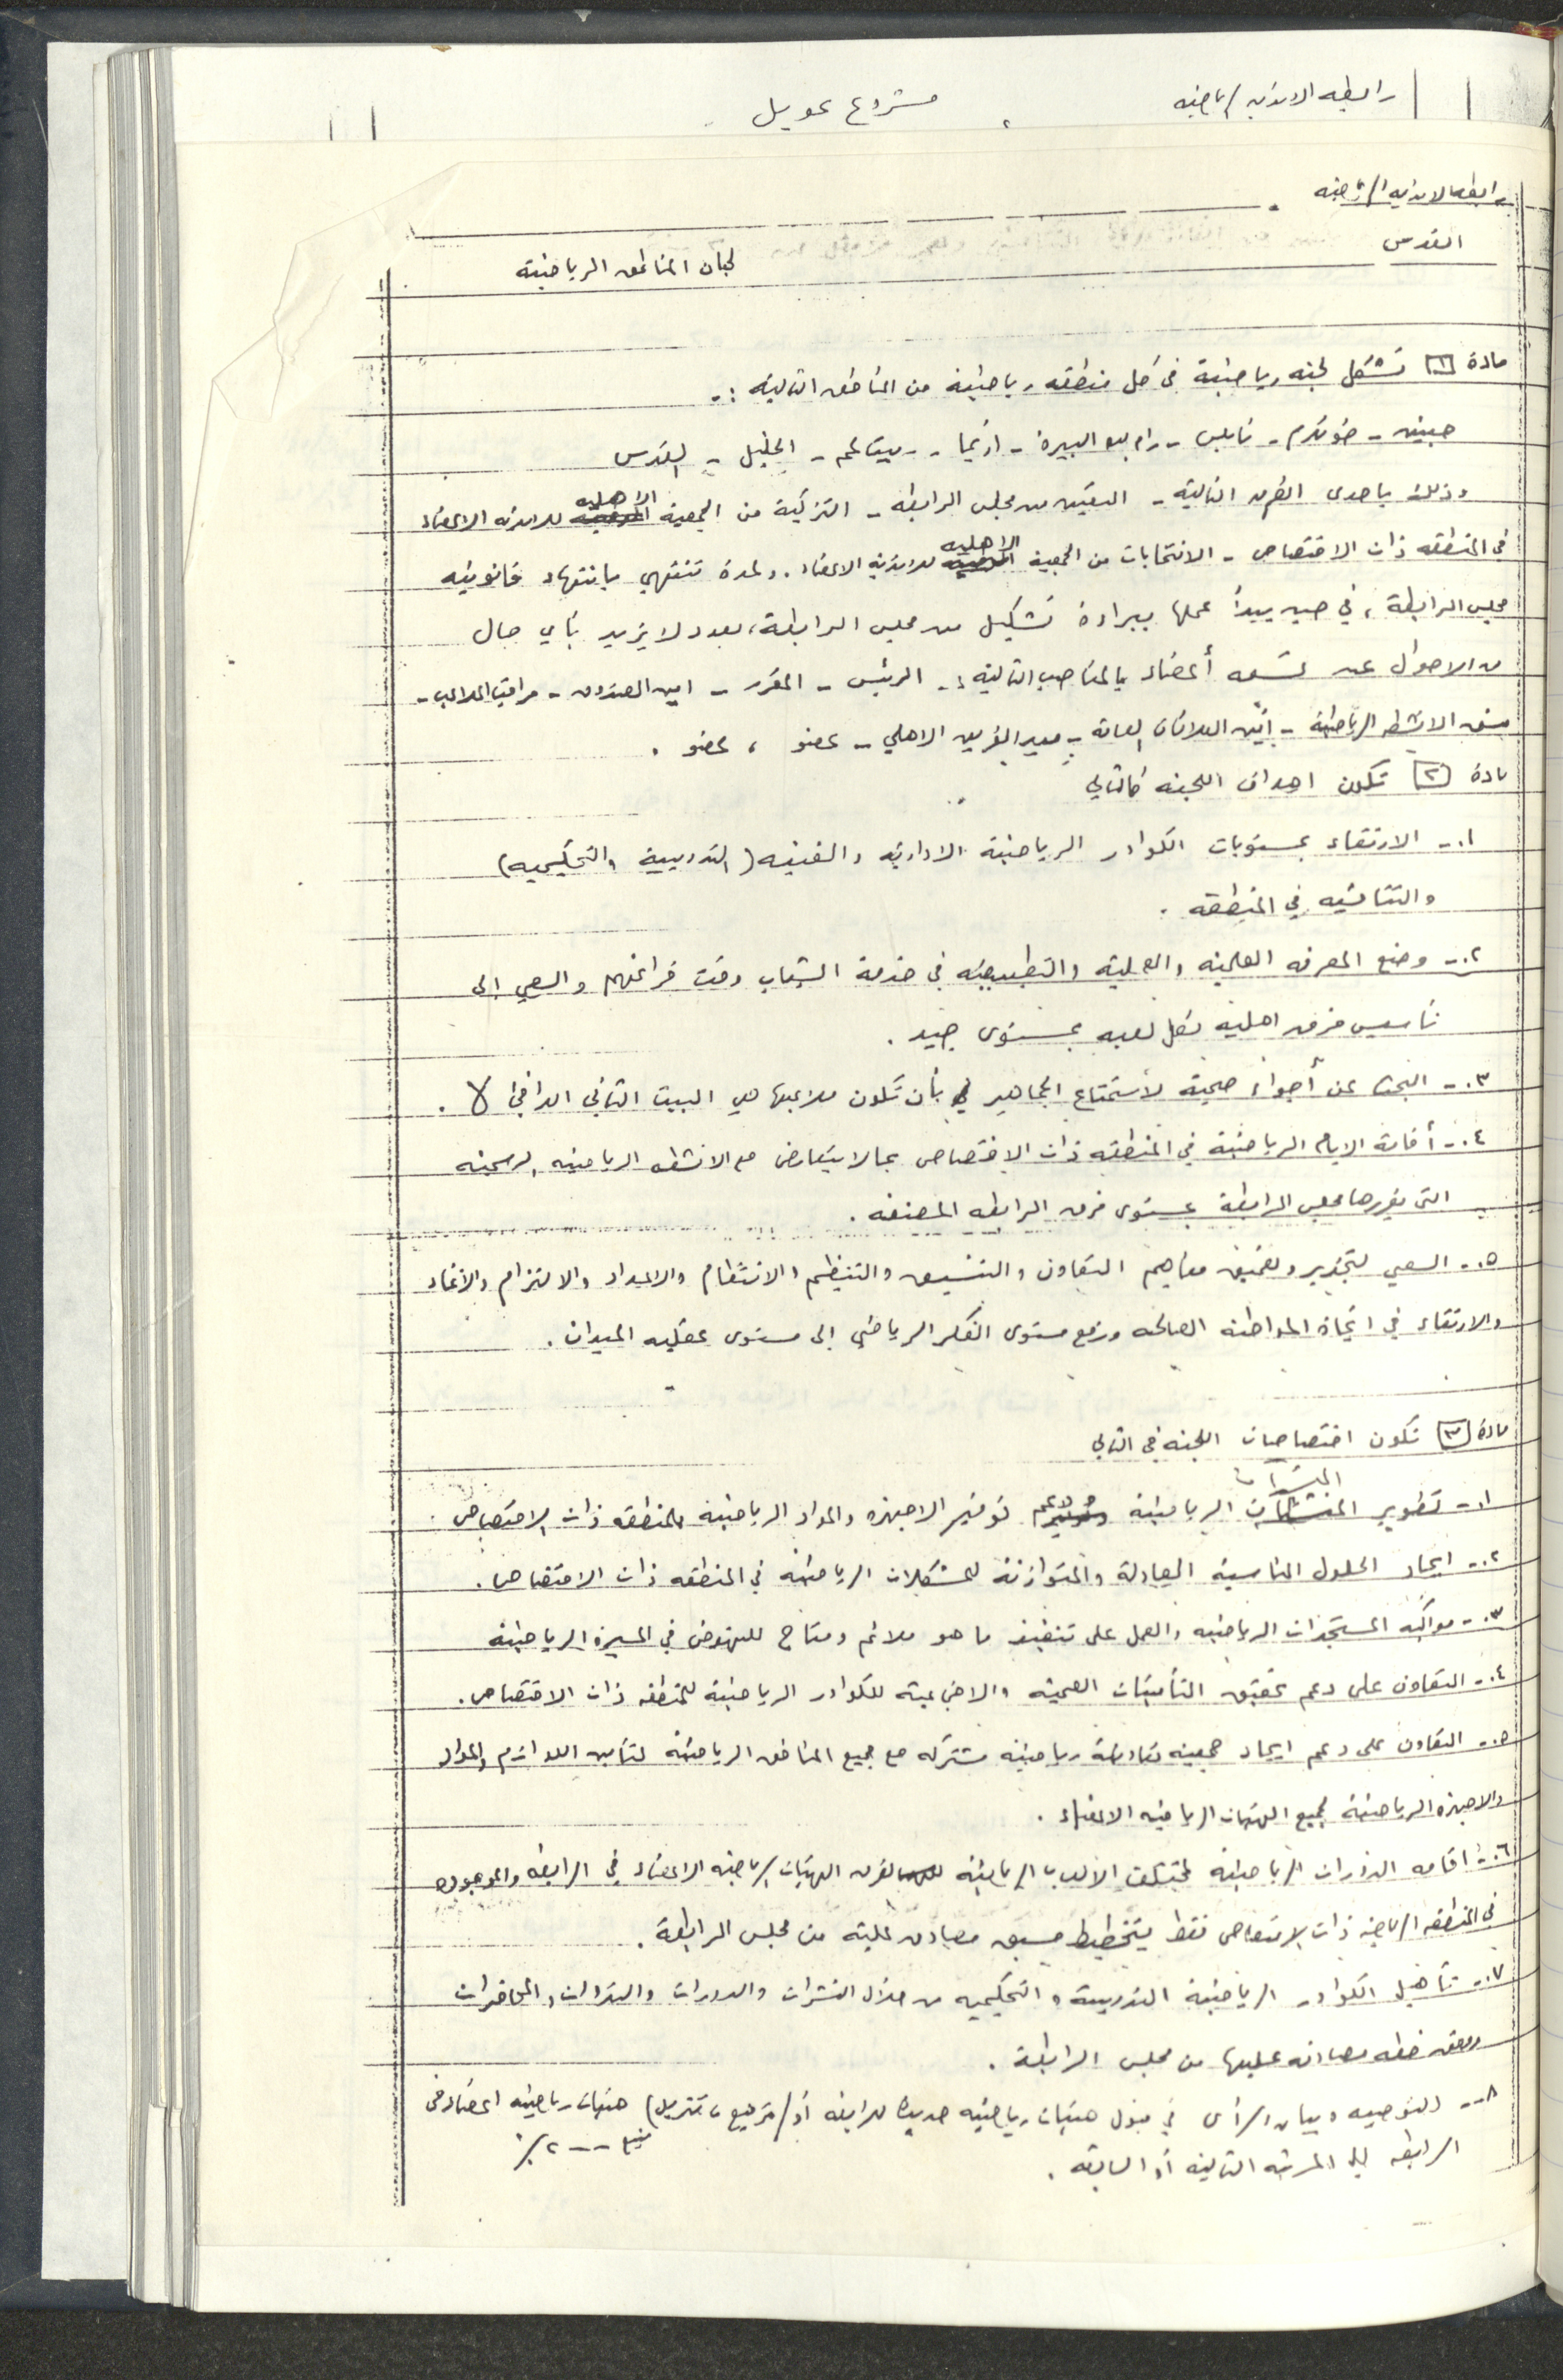 رابطه الانديه الرياضيه
مشروع تمويل
رابطه الانديه الرياضيه
القدس
لجان المناطق الرياضية
مادة [١] تشكل لجنه رياضية في كل منطقه رياضية من المناطق التالية :-
جنين - طولكرم - نابلس - رام الله البيرة - اريحا - بيت لحم - الخليل - القدس
وذلك باحدى الطرق التالية - التعيين من مجلس الرابطه - التزكية من الجمعية الاهليه للانديه الاعضاء
في المنطقه ذات الاختصاص - الانتخابات من الجمعية الاهليه للانديه الاعضاء . ولمدة تنتهي بانتهاء قانونيه
مجلس الرابطة ، في حين يبدأ عملها ببراءة تشكيل من مجلس الرابطة ، بعدد لا يزيد بأي حال
من الاحوال عن تسعه أعضاء بالمناصب التالية :- الرئيس - المقرر - امين الصندوق - مراقب الملاعب -
منسق الانشطه الرياضية - أمين العلاقات العامة - مدير الفريق الاهلي - عضو ، عضو .
مادة [٢] تكون اهداف اللجنه كالتالي
١- الارتقاء بمستويات الكوادر الرياضية الادارية والفنيه ( التدريبية والتحكيميه )
والتنافسيه في المنطقه .
٢- وضع المعرفه العلمية والعملية والتطبيقيه في خدمة الشباب وقت فراغهم والسعي الى
تأسيس فرق اهلية لكل لعبه بمستوى جيد .
٣- البحث عن أجواء صحية لأستمتاع الجماهير بأن تكون ملاعبها هي البيت الثاني الدافئ لها .
٤- أقامة الايام الرياضية في المنطقه ذات الاختصاص بما لا يتعارض مع الانشطه الرياضيه الرسميه
التي يقررها مجلس الرابطة بمستوى فرق الرابطه المصنفه .
٥- السعي لتجذير وتعميق مفاهيم التعاون والتنسيق والتنظيم والانتظام والاعداد والالتزام والأنتماء
والارتقاء في اتجاه المواطنه الصالحه ورفع مستوى الفكر الرياضي الى مستوى عقليه الميدان .
مادة [٣] تكون اختصاصات اللجنه في التالي
المنشآت
١- تطوير الرياضية ودعم توفير الاجهزه والمواد الرياضية للمنطقه ذات الاختصاص .
٢- ايجاد الحلول المناسبة العادلة والمتوازنة للمشكلات الرياضية في المنطقه ذات الاختصاص .
٣- مواكبة المستجدات الرياضيه والعمل على تنفيذ ما هو ملائم ومتاح للنهوض في المسيرة الرياضية
٤- التعاون على دعم تحقيق التأمينات الصحية والاجتماعية للكوادر الرياضية للمنطقه ذات الاختصاص .
٥- التعاون على دعم ايجاد جمعيه تعاونية رياضية مشتركه مع جميع المناطق الرياضية لتأمين اللوازم والمواد
والاجهزه الرياضية لجميع الهيئات الرياضيه الاعضاء .
٦- اقامه الدورات الرياضية لمختلف الالعاب الرياضية لفرق الهيئات الرياضيه الاعضاء في الرابطه والموجودة
في المنطقه الرياضيه ذات الاختصاص فقط بتخطيط مسبق مصادق عليه من مجلس الرابطة .
٧- تأهيل الكوادر الرياضية التدريبية والتحكيميه من خلال النشرات والدورات والندوات والمحاضرات
وفق خطه مصادقه عليها من مجلس الرابطة .
٨- التوصيه وبيان الرأي في قبول هيئات رياضيه جديدة للرابطه أو ( ترفيع ، تنزيل ) هيئات رياضيه اعضاء في
الرابطه الى المرتبه التاليه أو السابقه .
يتبع --- ٢/